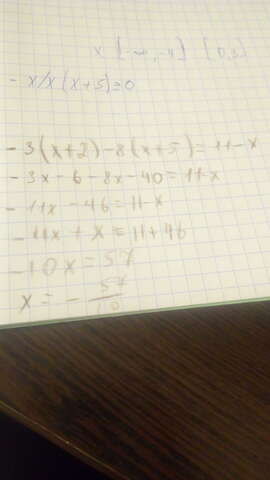 - x/x(x+5)=0
-3(x+2)-8(x+5)=11-x
-3x-6-8x-40=11-x
-11x-46=11-x
-11x+x=11+46
-10x=57
x=-57/10